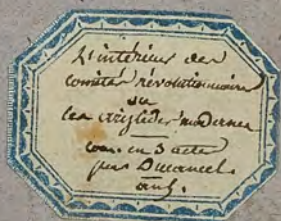 L'intérieur des
comités révolutionnaires
ou
les aristides modernes
com. en 3 actes
par Ducancel.